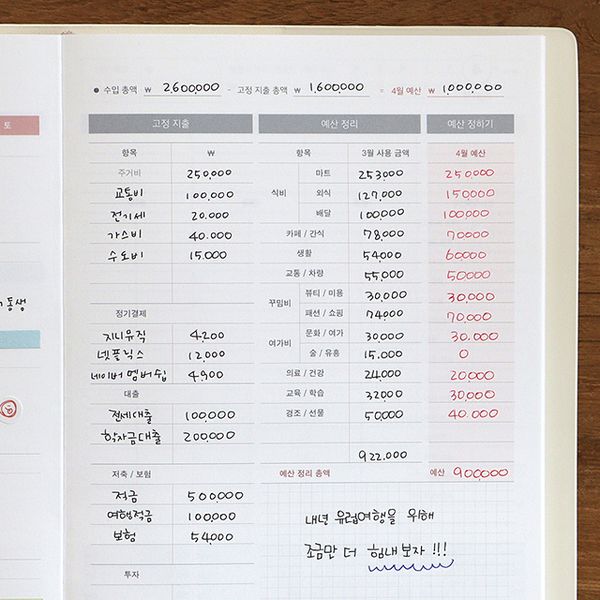 ● 수입 총액 ₩ 2,600,000 - 고정 지출 총액 ₩ 1,600,000 = 4월 예산 ₩ 1,000,000
토
고정 지출
항목 ₩
주거비 250,000
교통비 100,000
전기세 20.000
가스비 40.000
수도비 15.000
정기결제
지니뮤직 4200
넷플릭스 12,000
네이버 멤버쉽 4,900
대출
전세대출 100,000
학자금대출 200,000
저축 / 보험
저금 500,000
여행적금 100,000
보험 54,000
투자
예산 정리
항목 3월 사용 금액
식비
마트 253000
외식 127,000
배달 100,000
카페 / 간식 78,000
생활 54000
교통 / 차량 55,000
꾸밈비
뷰티 / 미용 30,000
패션 / 쇼핑 74000
여가비
문화 / 여가 30,000
술 / 유흥 15.000
의료 / 건강 24,000
교육 / 학습 32000
경조 / 선물 50,000
922.000
예산 정하기
4월 예산
250,000
150,000
100000
70000
60000
50000
30,000
70,000
30.000
0
20,000
30,000
40.000
예산 정리 총액 예산 900,000
내년 유럽여행을 위해
조금만 더 힘내보자 !!!
동생